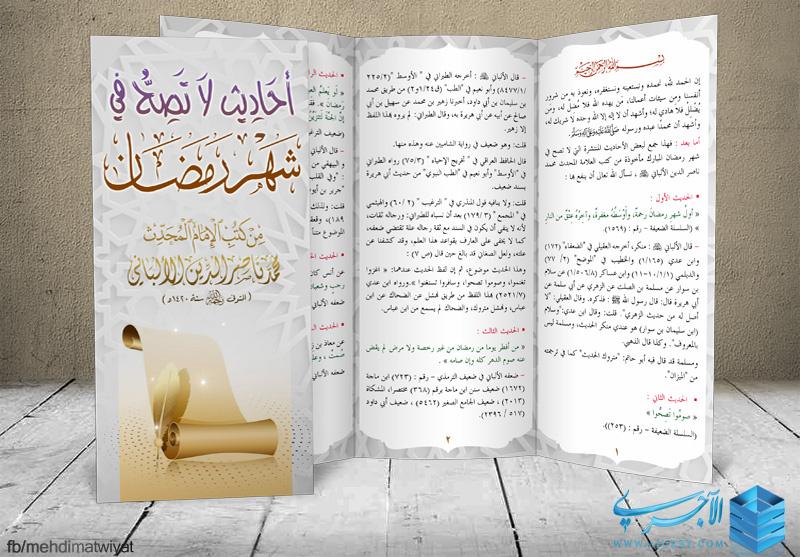 أحاديث لا تصح في
شهر رمضان
من كتب الإمام المحدث
محمد ناصر الدين الألباني
( المتوفى رحمه الله سنة ١٤٢٠هـ )
بسم الله الرحمن الرحيم
إن الحمد لله، نحمده ونستعينه ونستغفره، ونعوذ به من شرور
أنفسنا ومن سيئات أعمالنا، من يهده الله فلا مُضل له، ومن
يُضلل فلا هادي له، وأشهد أن لا إله إلا الله وحده لا شريك له،
وأشهد أن محمدًا عبده ورسوله ﷺ
أما بعد : فهذا جمع لبعض الأحاديث المنتشرة التي لا تصح في
شهر رمضان المبارك مأخوذة من كتب العلامة المحدث محمد
ناصر الدين الألباني ، نسأل الله تعالى أن ينفع بها :
• الحديث الأول :
« أول شهر رمضان رحمة، وأوسطُه مغفرة، وآخرُهُ عتقٌ من النار
» (السلسلة الضعيفة – رقم : ١٥٦٩)
– قال الألباني : منكر، أخرجه العقيلي في "الضعفاء" (١٧٢)
وابن عدي (١/١٦٥) والخطيب في "الموضح" (٢/ ٧٧)
والديلمي (١/١/ ١٠-١١) وابن عساكر (٨/٥٠٦/١) عن سلام
بن سوار عن مسلمة بن الصلت عن الزهري عن أبي سلمة عن
أبي هريرة قال: قال رسول الله ﷺ : فذكره. وقال العقيلي: "لا
أصل له من حديث الزهري". قلت: وقال ابن عدي:"وسلام
(ابن سليمان بن سوار) هو عندي منكر الحديث، ومسلمة ليس
بالمعروف". وكذا قال الذهبي.
ومسلمة قد قال فيه أبو حاتم: "متروك الحديث" كما في ترجمته
من "الميزان".
• الحديث الثاني :
« صوموا تصحُّوا »
(السلسلة الضعيفة – رقم : (٢٥٣)).
١
– قال الألباني : أخرجه الطبراني في " الأوسط "(٢/٢٢٥
/٨٤٧٧/١) وأبو نعيم في "الطب" (ق٢٤ /١و٢) من طريق محمد
بن سليمان بن أبي داود، أخبرنا زهير بن محمد عن سهيل بن أبي
صالح عن أبيه عن أبي هريرة به، وقال الطبراني: لم يروه بهذا اللفظ
إلا زهير.
قلت: وهو ضعيف في رواية الشاميين عنه وهذه منها.
قال الحافظ العراقي في " تخريج الإحياء " (٣/٧٥) رواه الطبراني
في "الأوسط" وأبو نعيم في "الطب النبوي" من حديث أبي هريرة
بسند ضعيف.
قلت: ولا ينافيه قول المنذري في "الترغيب " (٢ /٦٠) والهيثمي
في " المجمع " (٣ /١٧٩) بعد أن نسباه للطبراني: ورجاله ثقات،
لأنه لا ينفي أن يكون في السند مع ثقة رجاله علة تقتضي ضعفه،
كما لا يخفى على العارف بقواعد هذا العلم، وقد كشفنا عن
علته، ولعل الصغاني قد بالغ حين قال (ص ٧) :
وهذا الحديث موضوع، ثم إن لفظ الحديث عندهما: « اغزوا
تغنموا، وصوموا تصحوا، وسافروا تستغنوا ».ورواه ابن عدي
(٧/٢٠٢١) بهذا اللفظ من طريق نهشل عن الضحاك عن ابن
عباس، ونهشل متروك، والضحاك لم يسمع من ابن عباس.
• الحديث الثالث :
« من أفطر يوما من رمضان من غير رخصة ولا مرض لم يقض
عنه صوم الدهر كله وإن صامه » .
– ضعفه الألباني في ضعيف الترمذي – رقم : (٧٢٣) ابن ماجة
(١٦٧٢) ضعيف سنن ابن ماجة برقم (٣٦٨) مختصرا، المشكاة
(٢٠١٣) ، ضعيف الجامع الصغير (٥٤٦٢) ، ضعيف أبي داود
(٥١٧ / ٢٣٩٦) .
٢
• الحديث
رمضان
ضعفه الألباني
fb/mehdimatwiyat
الآجري